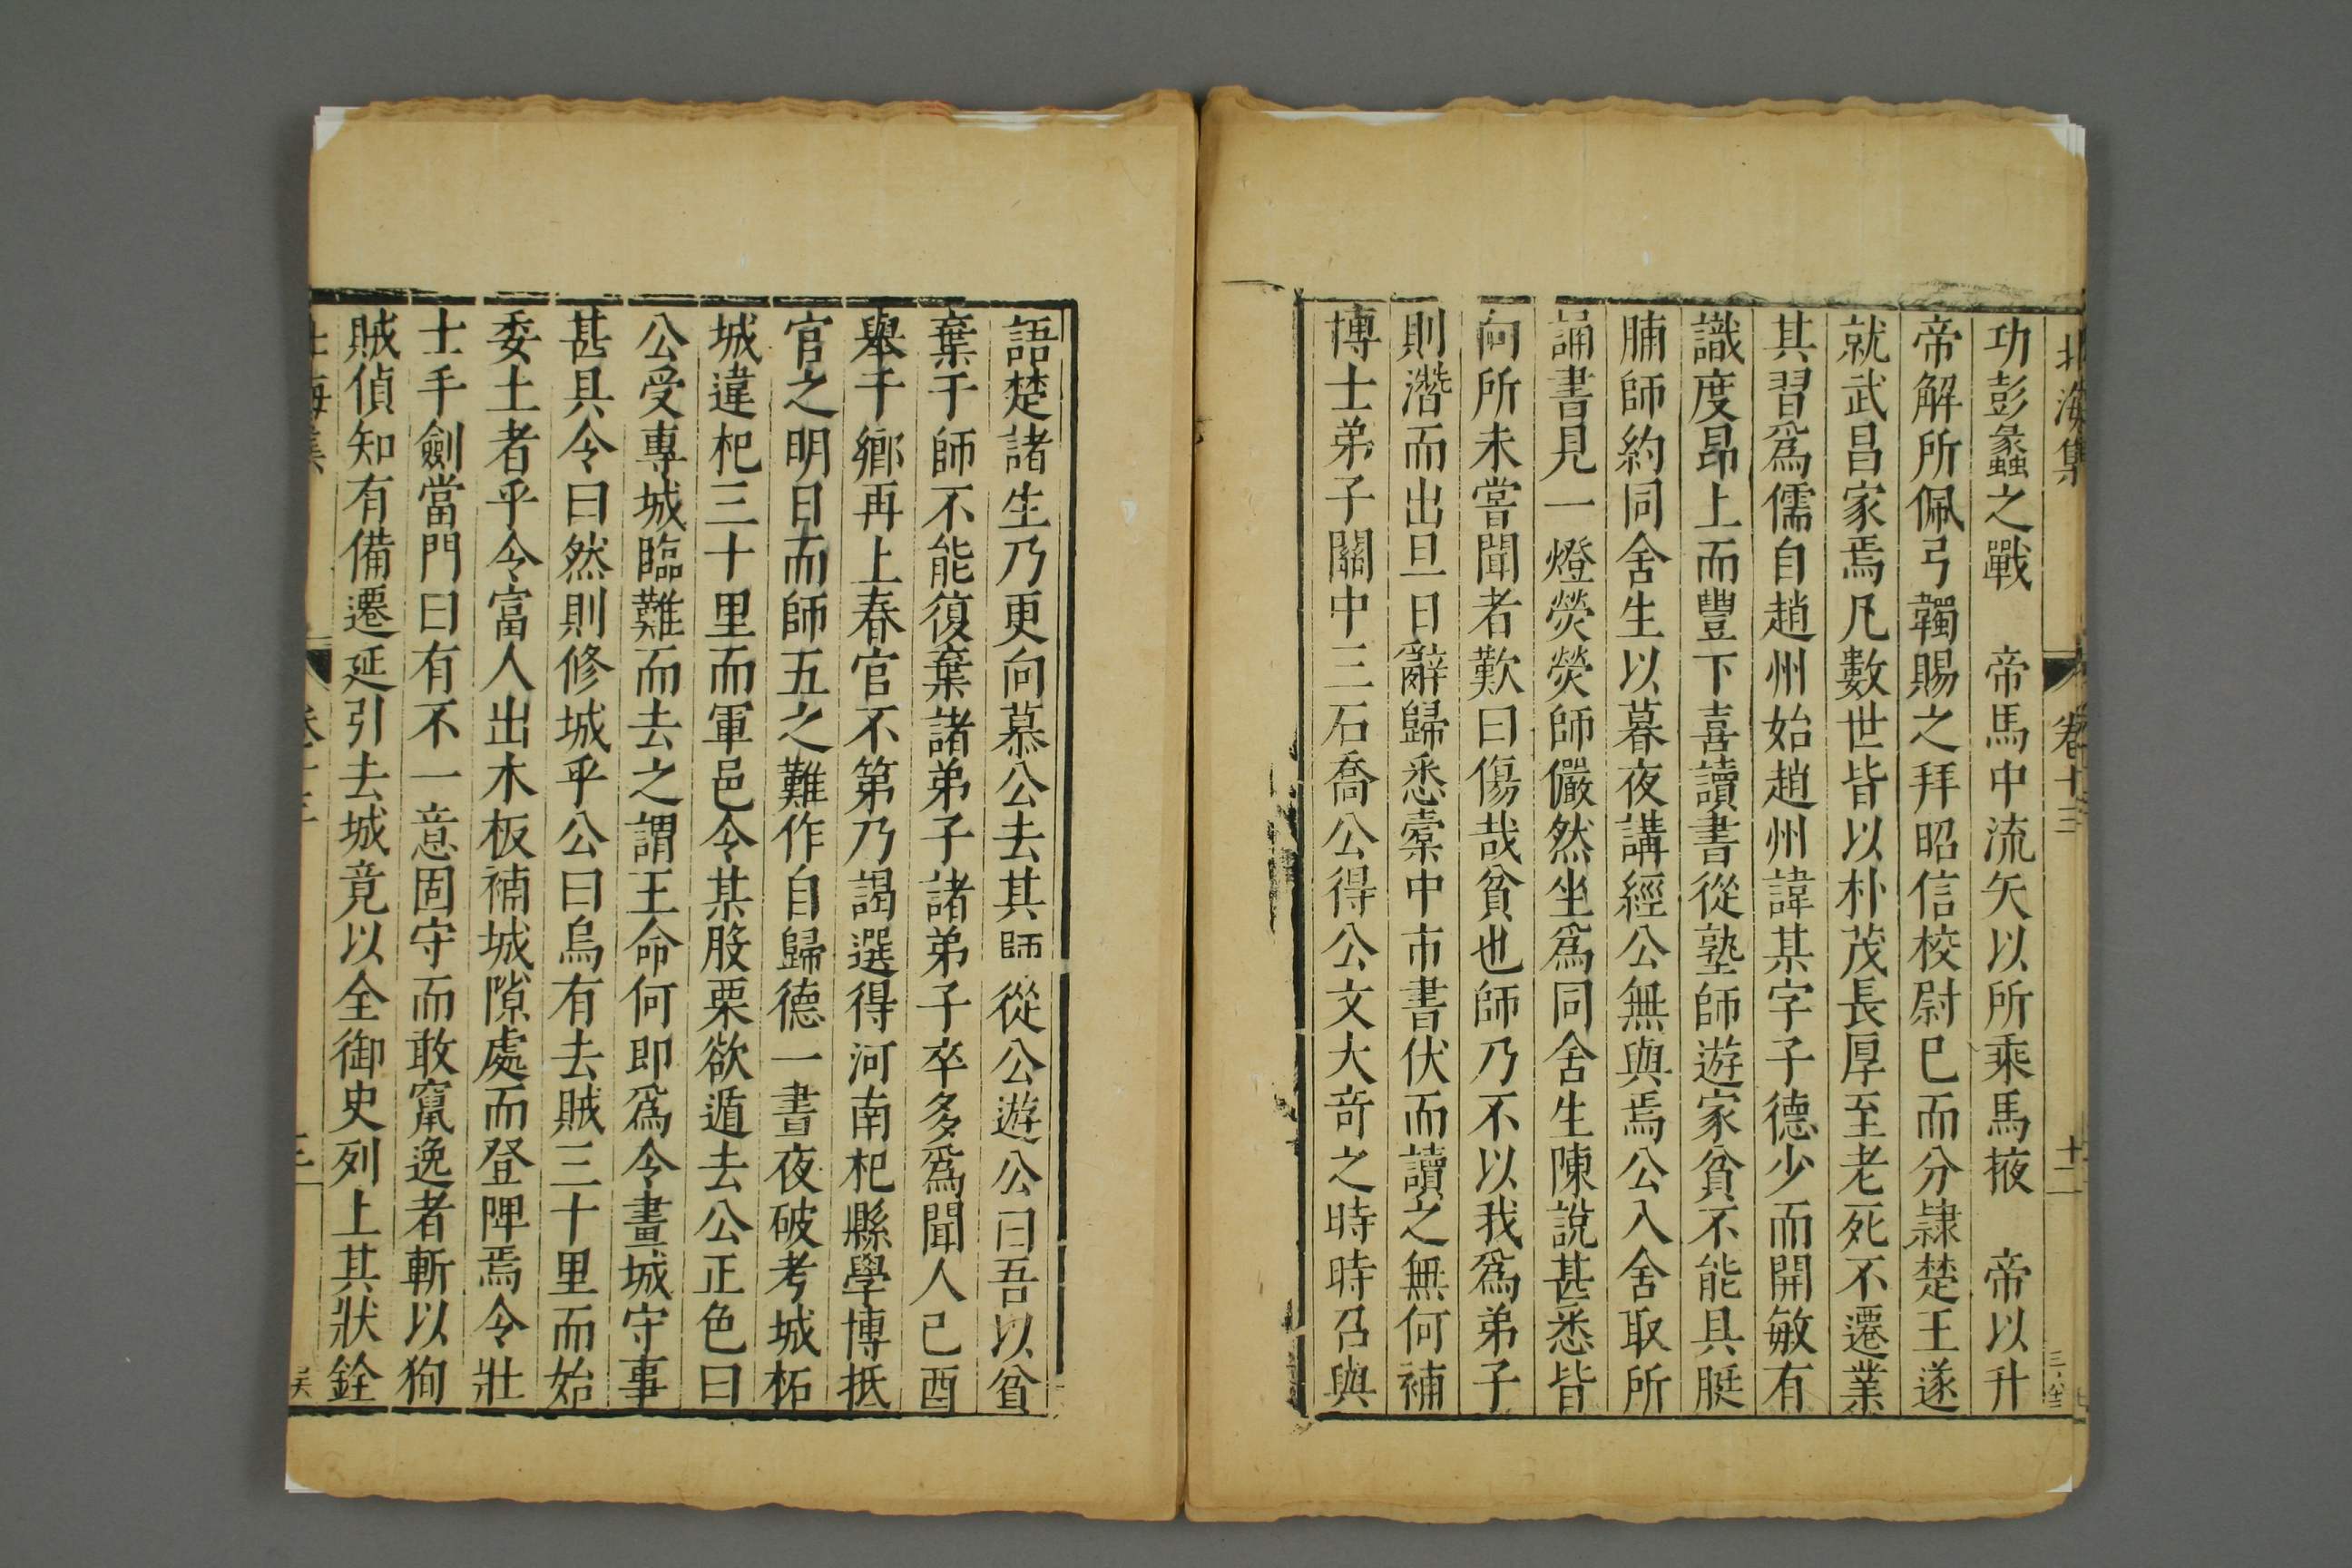 北海集 卷十三 十二
功彭蠡之戰 帝馬中流矢以所乘馬掖 帝以升
帝解所佩弓韣賜之拜昭信校尉已而分隷楚王遂
就武昌家焉凡數世皆以朴茂長厚至老死不遷業
其習爲儒自趙州始趙州諱某字子德少而開敏有
識度昂上而豐下喜讀書從塾師遊家貧不能具脡
脯師約同舍生以暮夜講經公無與焉公入舍取所
誦書見一燈熒熒師儼然坐爲同舍生陳說甚悉皆
向所未嘗聞者歎曰傷哉貧也師乃不以我爲弟子
則潛而出旦日辭歸悉橐中市書伏而讀之無何補
博士弟子關中三石喬公得公文大奇之時時召與
語楚諸生乃更向慕公去其師從公遊公曰吾以貧
棄于師不能復棄諸弟子諸弟子卒多爲聞人已酉
舉于鄉再上春官不第乃謁選得河南杞縣學博抵
官之明日而師五之難作自歸德一晝夜破考城柘
城違杞三十里而軍邑令某股栗欲遁去公正色曰
公受專城臨難而去之謂王命何即爲令畫城守事
甚具令曰然則修城乎公曰烏有去賊三十里而始
委土者乎令富人出木板補城隙處而登陴焉令壯
士手劍當門曰有不一意固守而敢竄逸者斬以狥
賊偵知有備遷延引去城竟以全御史列上其狀銓